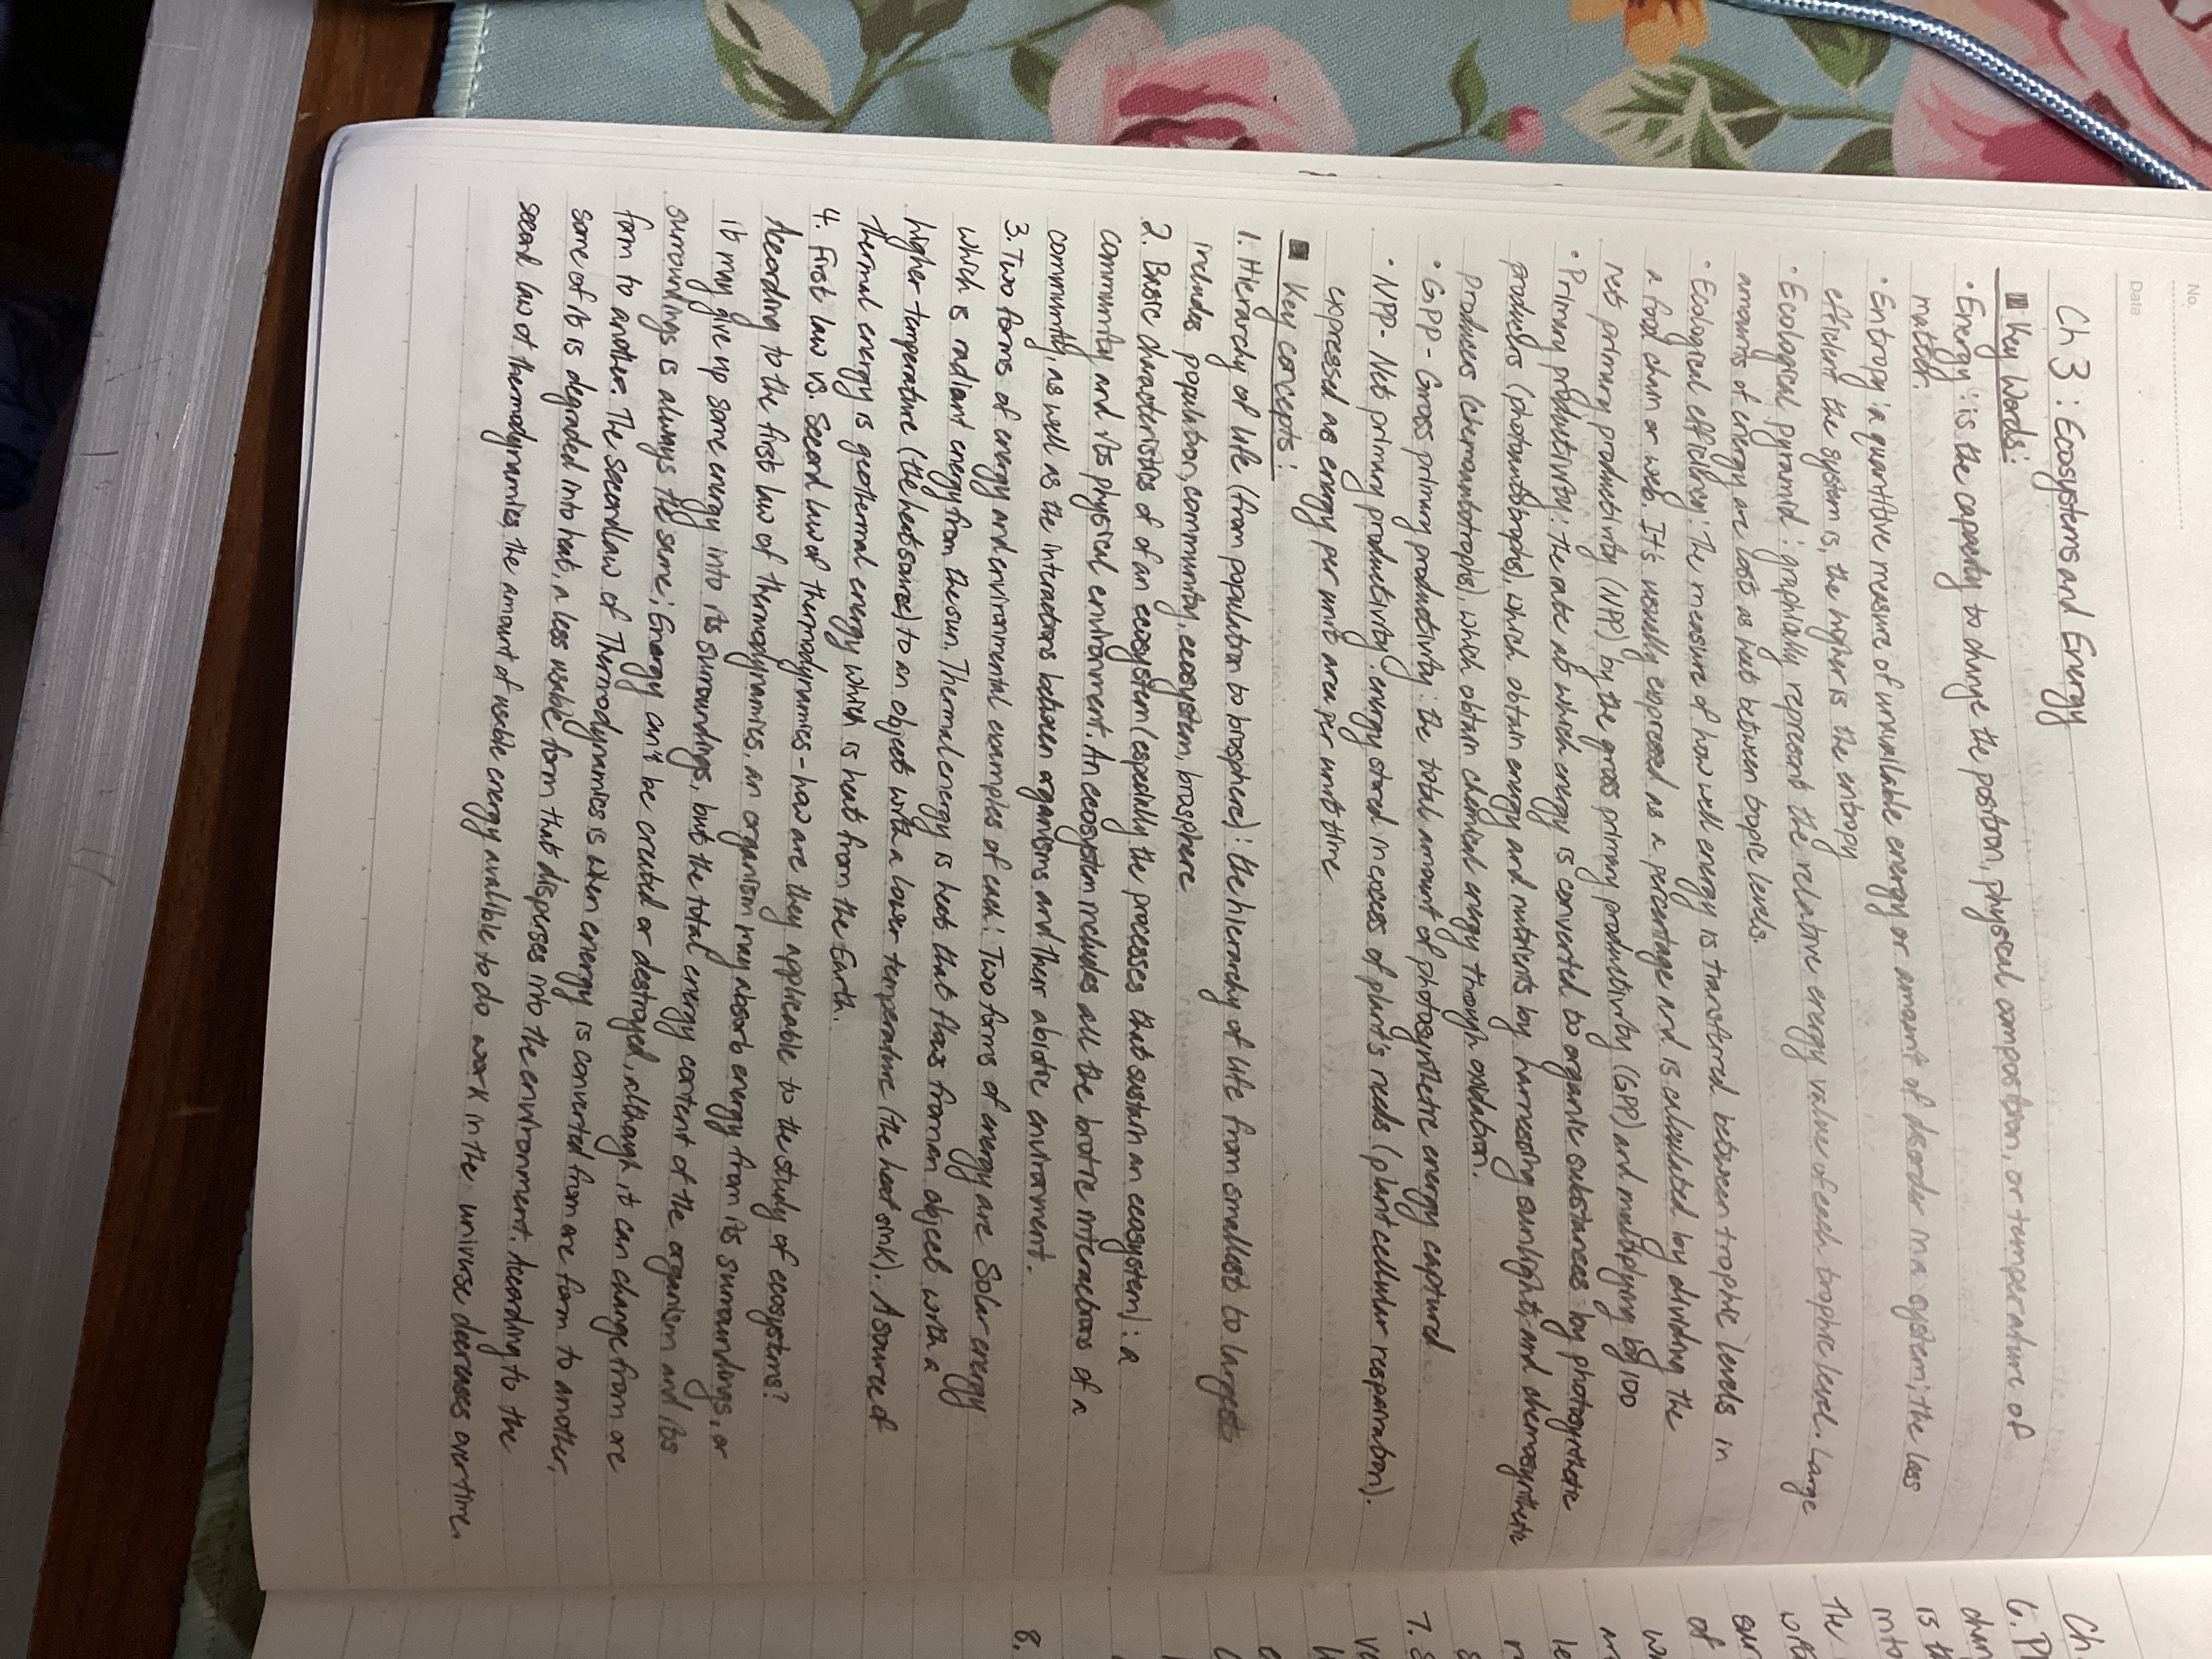 No.
Date
Ch 3 : Ecosystems and Energy
Key Words:
• Energy : is the capacity to change the position, physical composition, or temperature of
matter.
• Entropy : a quantitive measure of unavailable energy or amount of disorder in a system; the less
efficient the system is, the higher is the entropy
• Ecological pyramid : graphically represent the relative energy value of each trophic level. Large
amounts of energy are lost as heat between tropic levels.
• Ecological efficiency: The measure of how well energy is transferred between trophic levels in
a food chain or web. It's usually expressed as a percentage and is calculated by dividing the
net primary productivity (NPP) by the gross primary productivity (GPP) and multiplying by 100
• Primary productivity: the rate at which energy is converted to organic substances by photosynthetic
producers (photoautotrophs), which obtain energy and nutrients by harnessing sunlight, and chemosynthetic
producers (chemoautotrophs), which obtain chemical energy through oxidation.
• GPP - Gross primary productivity: the total amount of photosynthetic energy captured
• NPP - Net primary productivity: energy stored in excess of plant's needs (plant cellular respairation).
expressed as energy per unit area per unit time
Key concepts:
1. Hierarchy of life (from population to biosphere): the hierarchy of life from smallest to largest
includes population, community, ecosystem, biosphere
2. Basic characteristics of of an ecosystem (especially the processes that sustain an ecosystem): a
community and its physical environment. An ecosystem includes all the biotic interactions of a
community, as well as the interactions between organisms and their abiotic environment.
3. Two forms of energy and environmental examples of each: Two forms of energy are Solar energy
which is radiant energy from the sun. Thermal energy is heat that flows from an object with a
higher temperature (the heat source) to an object with a lower temperature (the heat sink). A source of
thermal energy is geothermal energy which is heat from the Earth.
4. First law vs. Second law of thermodynamics - how are they applicable to the study of ecosystems?
According to the first law of thermodynamics, an organism may absorb energy from its surroundings, or
it may give up some energy into its surroundings, but the total energy content of the organism and its
surroundings is always the same; Energy can't be created or destroyed, although it can change from one
form to another. The second law of Thermodynamics is when energy is converted from one form to another,
some of it is degraded into heat, a less usable form that disperses into the environment. According to the
second law of thermodynamics, the amount of usable energy avalible to do work in the universe decreases over time.
Ch.
6.
is
The
of
7.
8.